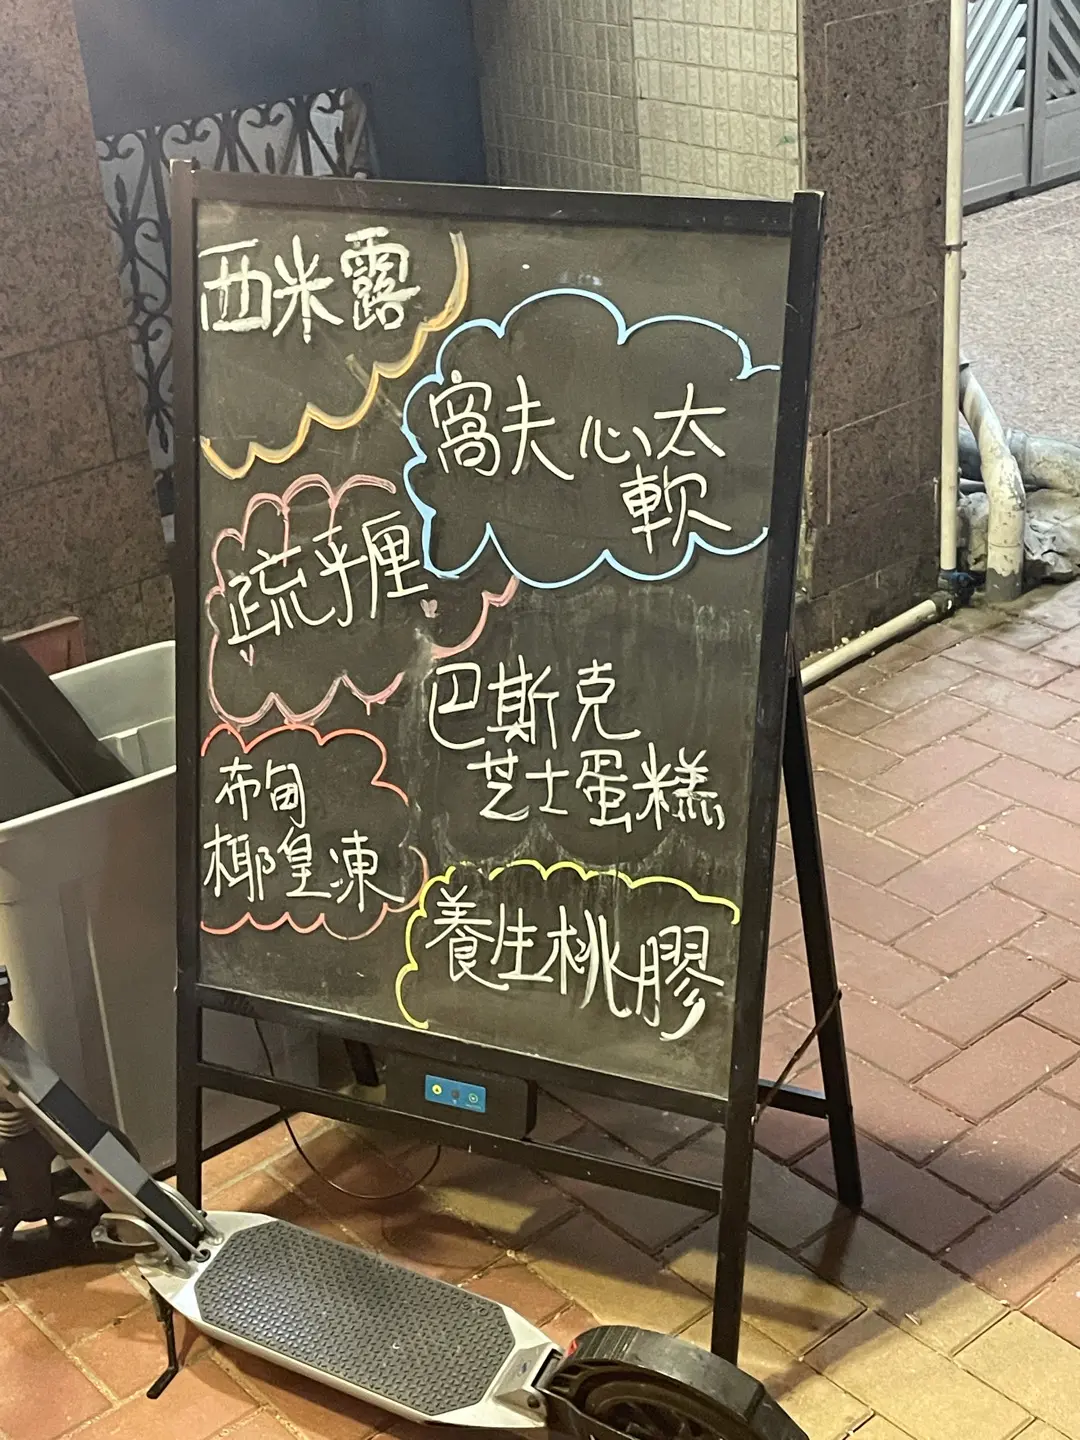 西米露
窩夫 心太
軟
疏乎厘
巴斯克
芝士蛋糕
布甸
椰皇凍
養生桃膠